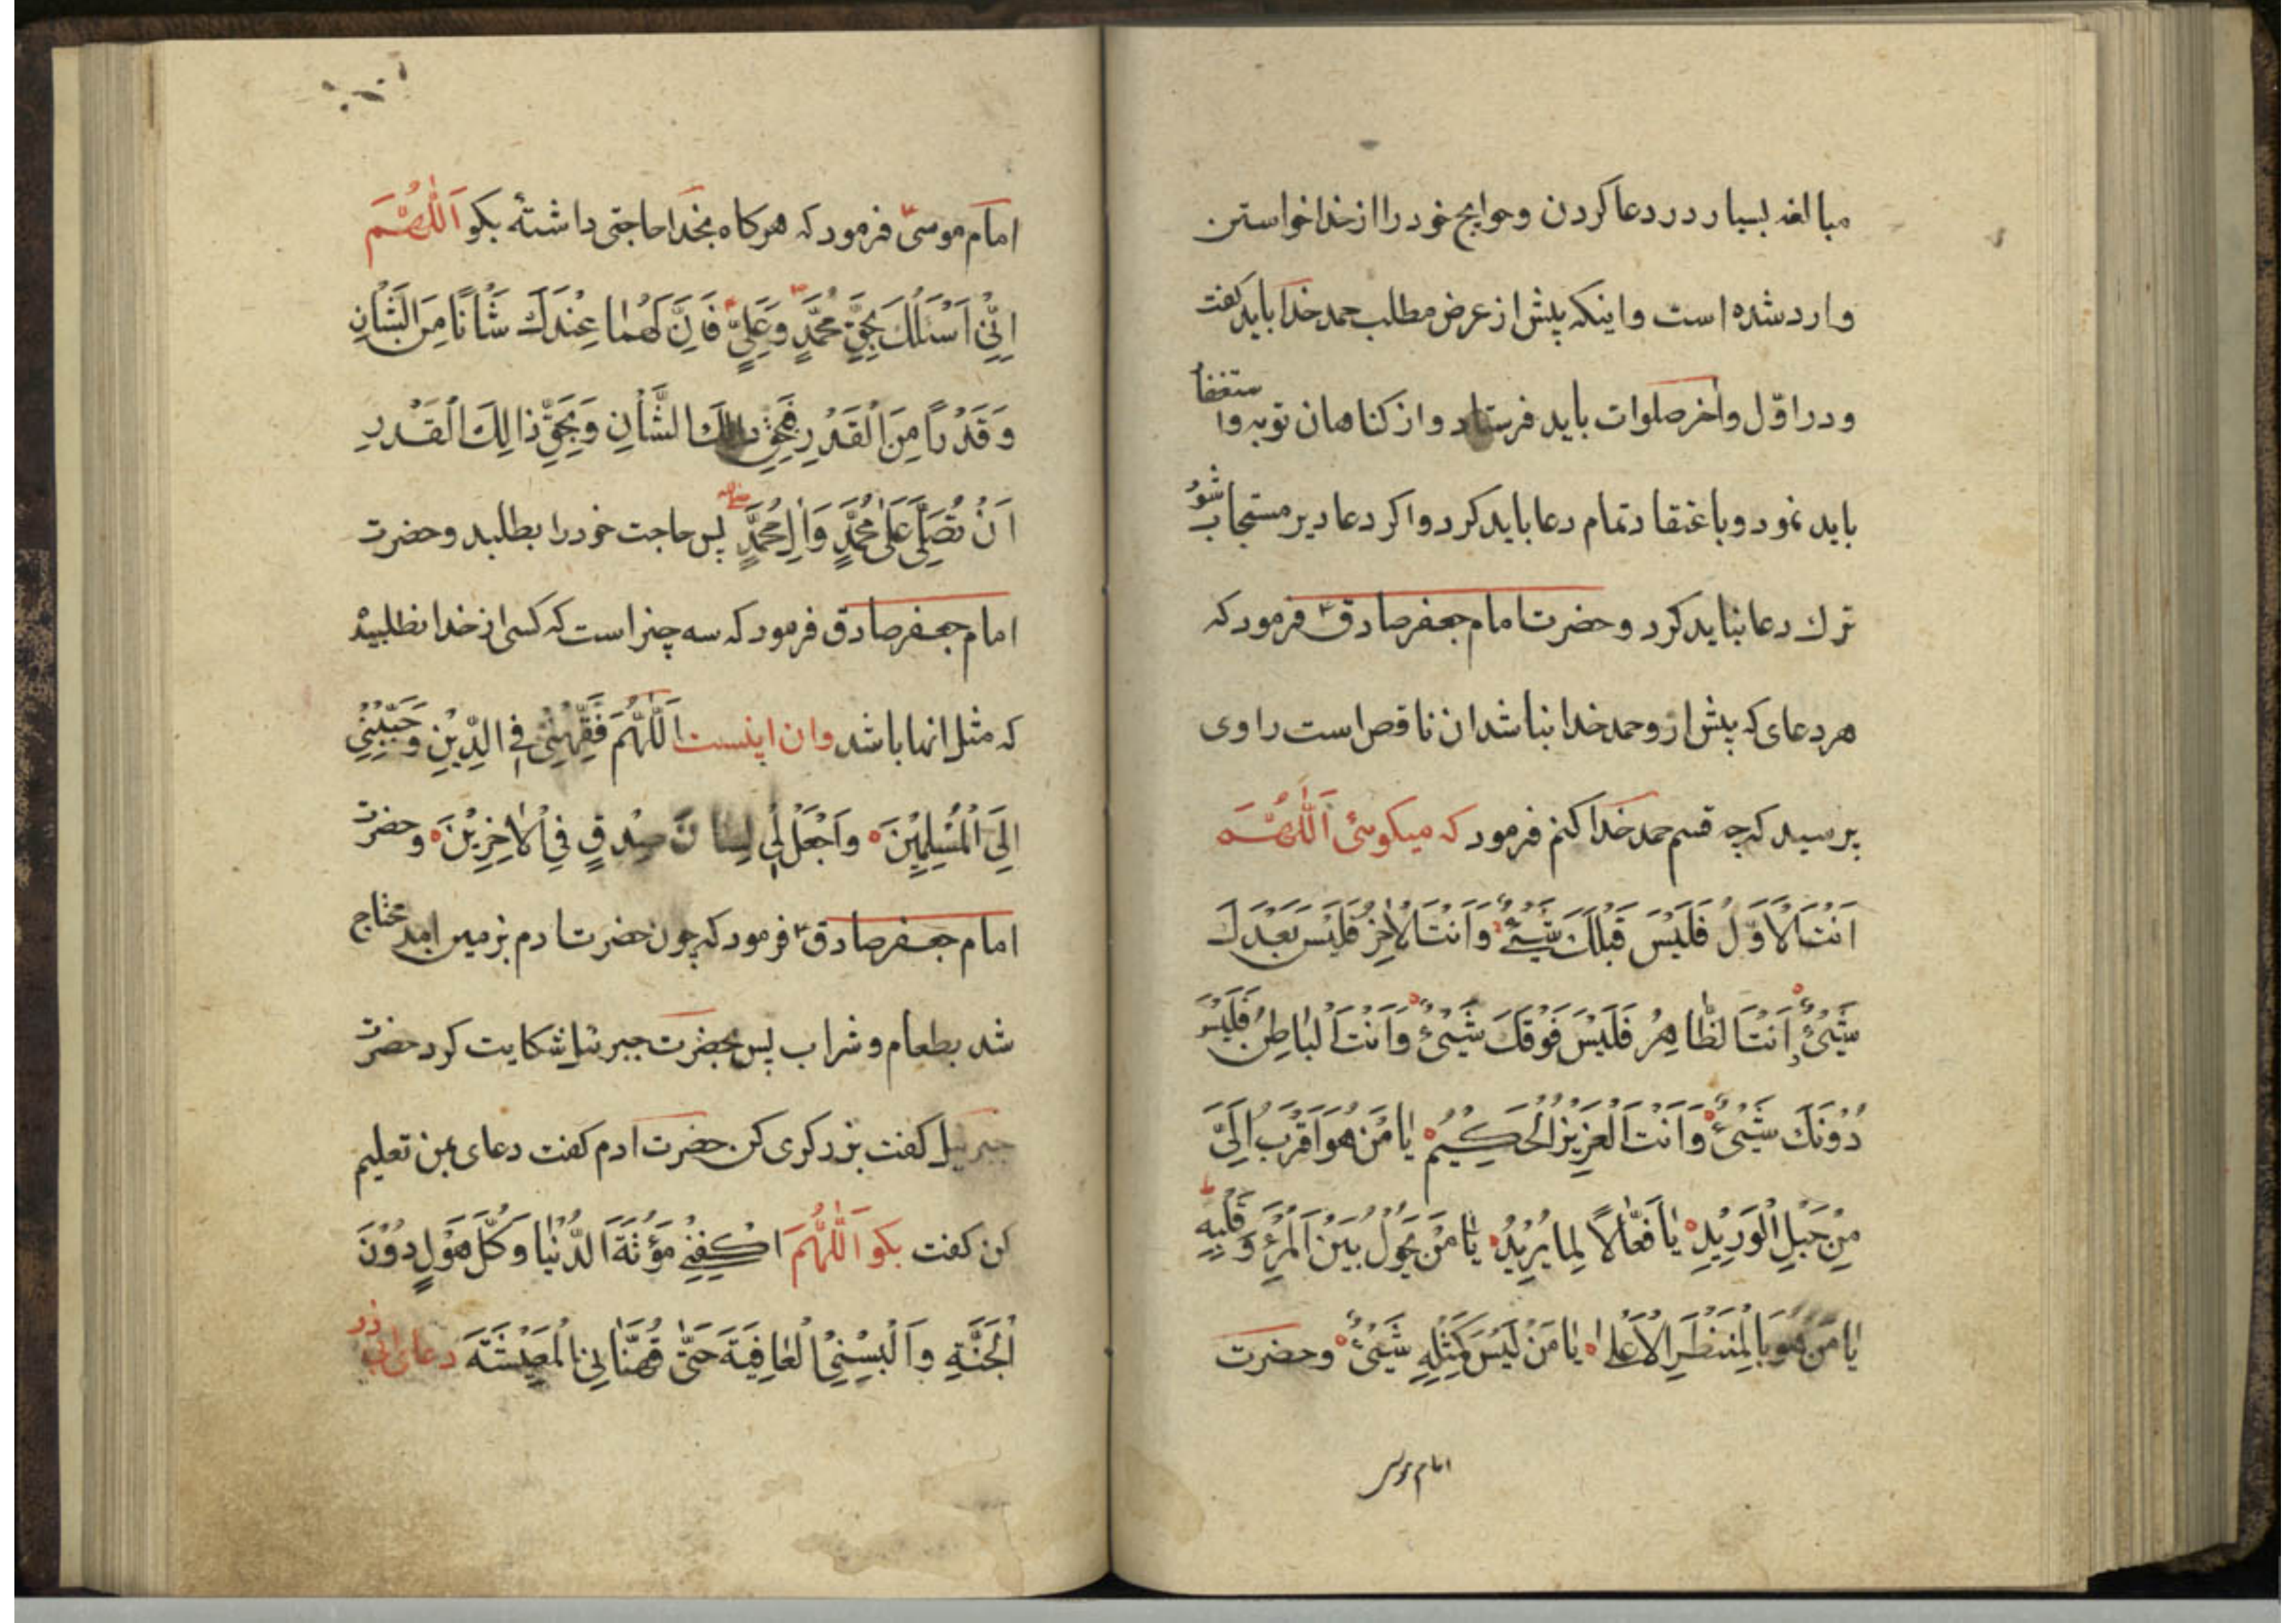 مبالغه بسیار در دعا کردن و حوایج خود را از خدا خواستن
وارد شده است و اینکه پیش از عرض مطلب حمد خدا باید کفت
و در اوّل و اخر صلوات باید فرستاد و از کناهان توبه و استغفا
باید نمود و باعتقاد تمام دعا باید کرد و اکر دعا دیر مستجاب شود
ترك دعا نباید کرد و حضرت امام جعفر صادق ع فرمود که
هر دعای که پیش از و حمد خدا نباشد ان ناقص است راوی
پرسید که چه قسم حمد خدا کنم فرمود که میکوئی اَللّٰهُمَّ
اَنْتَ الْاَوَّلُ فَلَيْسَ قَبْلَكَ شَيْئٌ وَاَنْتَ الْاٰخِرُ فَلَيْسَ بَعْدَكَ
شَيْئٌ وَاَنْتَ الظّٰاهِرُ فَلَيْسَ فَوْقَكَ شَيْئٌ وَاَنْتَ الْبٰاطِنُ فَلَيْسَ
دُوْنَكَ شَيْئٌ وَاَنْتَ الْعَزِيْزُ الْحَكِيْمُ يٰا مَنْ هُوَ اَقْرَبُ اِلَيَّ
مِنْ حَبْلِ الْوَرِيْدِ يٰا فَعّٰالًا لِمٰا يُرِيْدُ يٰا مَنْ يَحُوْلُ بَيْنَ الْمَرْءِ وَقَلْبِهِ
يٰا مَنْ هُوَ بِالْمَنْظَرِ الْاَعْلٰى يٰا مَنْ لَيْسَ كَمِثْلِهِ شَيْئٌ و حضرت
امام موسی
امام موسیٰ فرمود که هرکاه بخدا حاجتی داشتهٔ بکو اَللّٰهُمَّ
اِنِّيْ اَسْئَلُكَ بِحَقِّ مُحَمَّدٍ وَعَلِيٍّ فَاِنَّ لَهُمٰا عِنْدَكَ شَأْنًا مِنَ الشَّأْنِ
وَقَدْرًا مِنَ الْقَدْرِ فَبِحَقِّ ذٰلِكَ الشَّأْنِ وَبِحَقِّ ذالِكَ الْقَدْرِ
اَنْ تُصَلِّيَ عَلٰى مُحَمَّدٍ وَاٰلِ مُحَمَّدٍ پس حاجت خود را بطلبد و حضرت
امام جعفر صادق فرمود که سه چیز است که کسی از خدا نطلبیده
که مثل انها باشد و ان اینست اَللّٰهُمَّ فَقِّهْنِيْ فِي الدِّيْنِ وَحَبِّبْنِيْ
اِلَى الْمُسْلِمِيْنَ وَاجْعَلْ لِيْ لِسٰانَ صِدْقٍ فِي الْاٰخِرِيْنَ و حضرت
امام جعفر صادق ع فرمود که چون حضرت ادم بزمین امد محتاج
شد بطعام و شراب پس بحضرت جبرئیل شکایت کرد حضرت
جبرئیل کفت بزرکری کن حضرت ادم کفت دعای بمن تعلیم
کن کفت بکو اَللّٰهُمَّ اكْفِنِيْ مَؤُنَةَ الدُّنْيٰا وَكُلَّ هَوْلٍ دُوْنَ
الْجَنَّةِ وَاَلْبِسْنِي الْعٰافِيَةَ حَتّٰى تُهَنّٰانِي الْمَعِيْشَتَهَ دعای ابی ذر